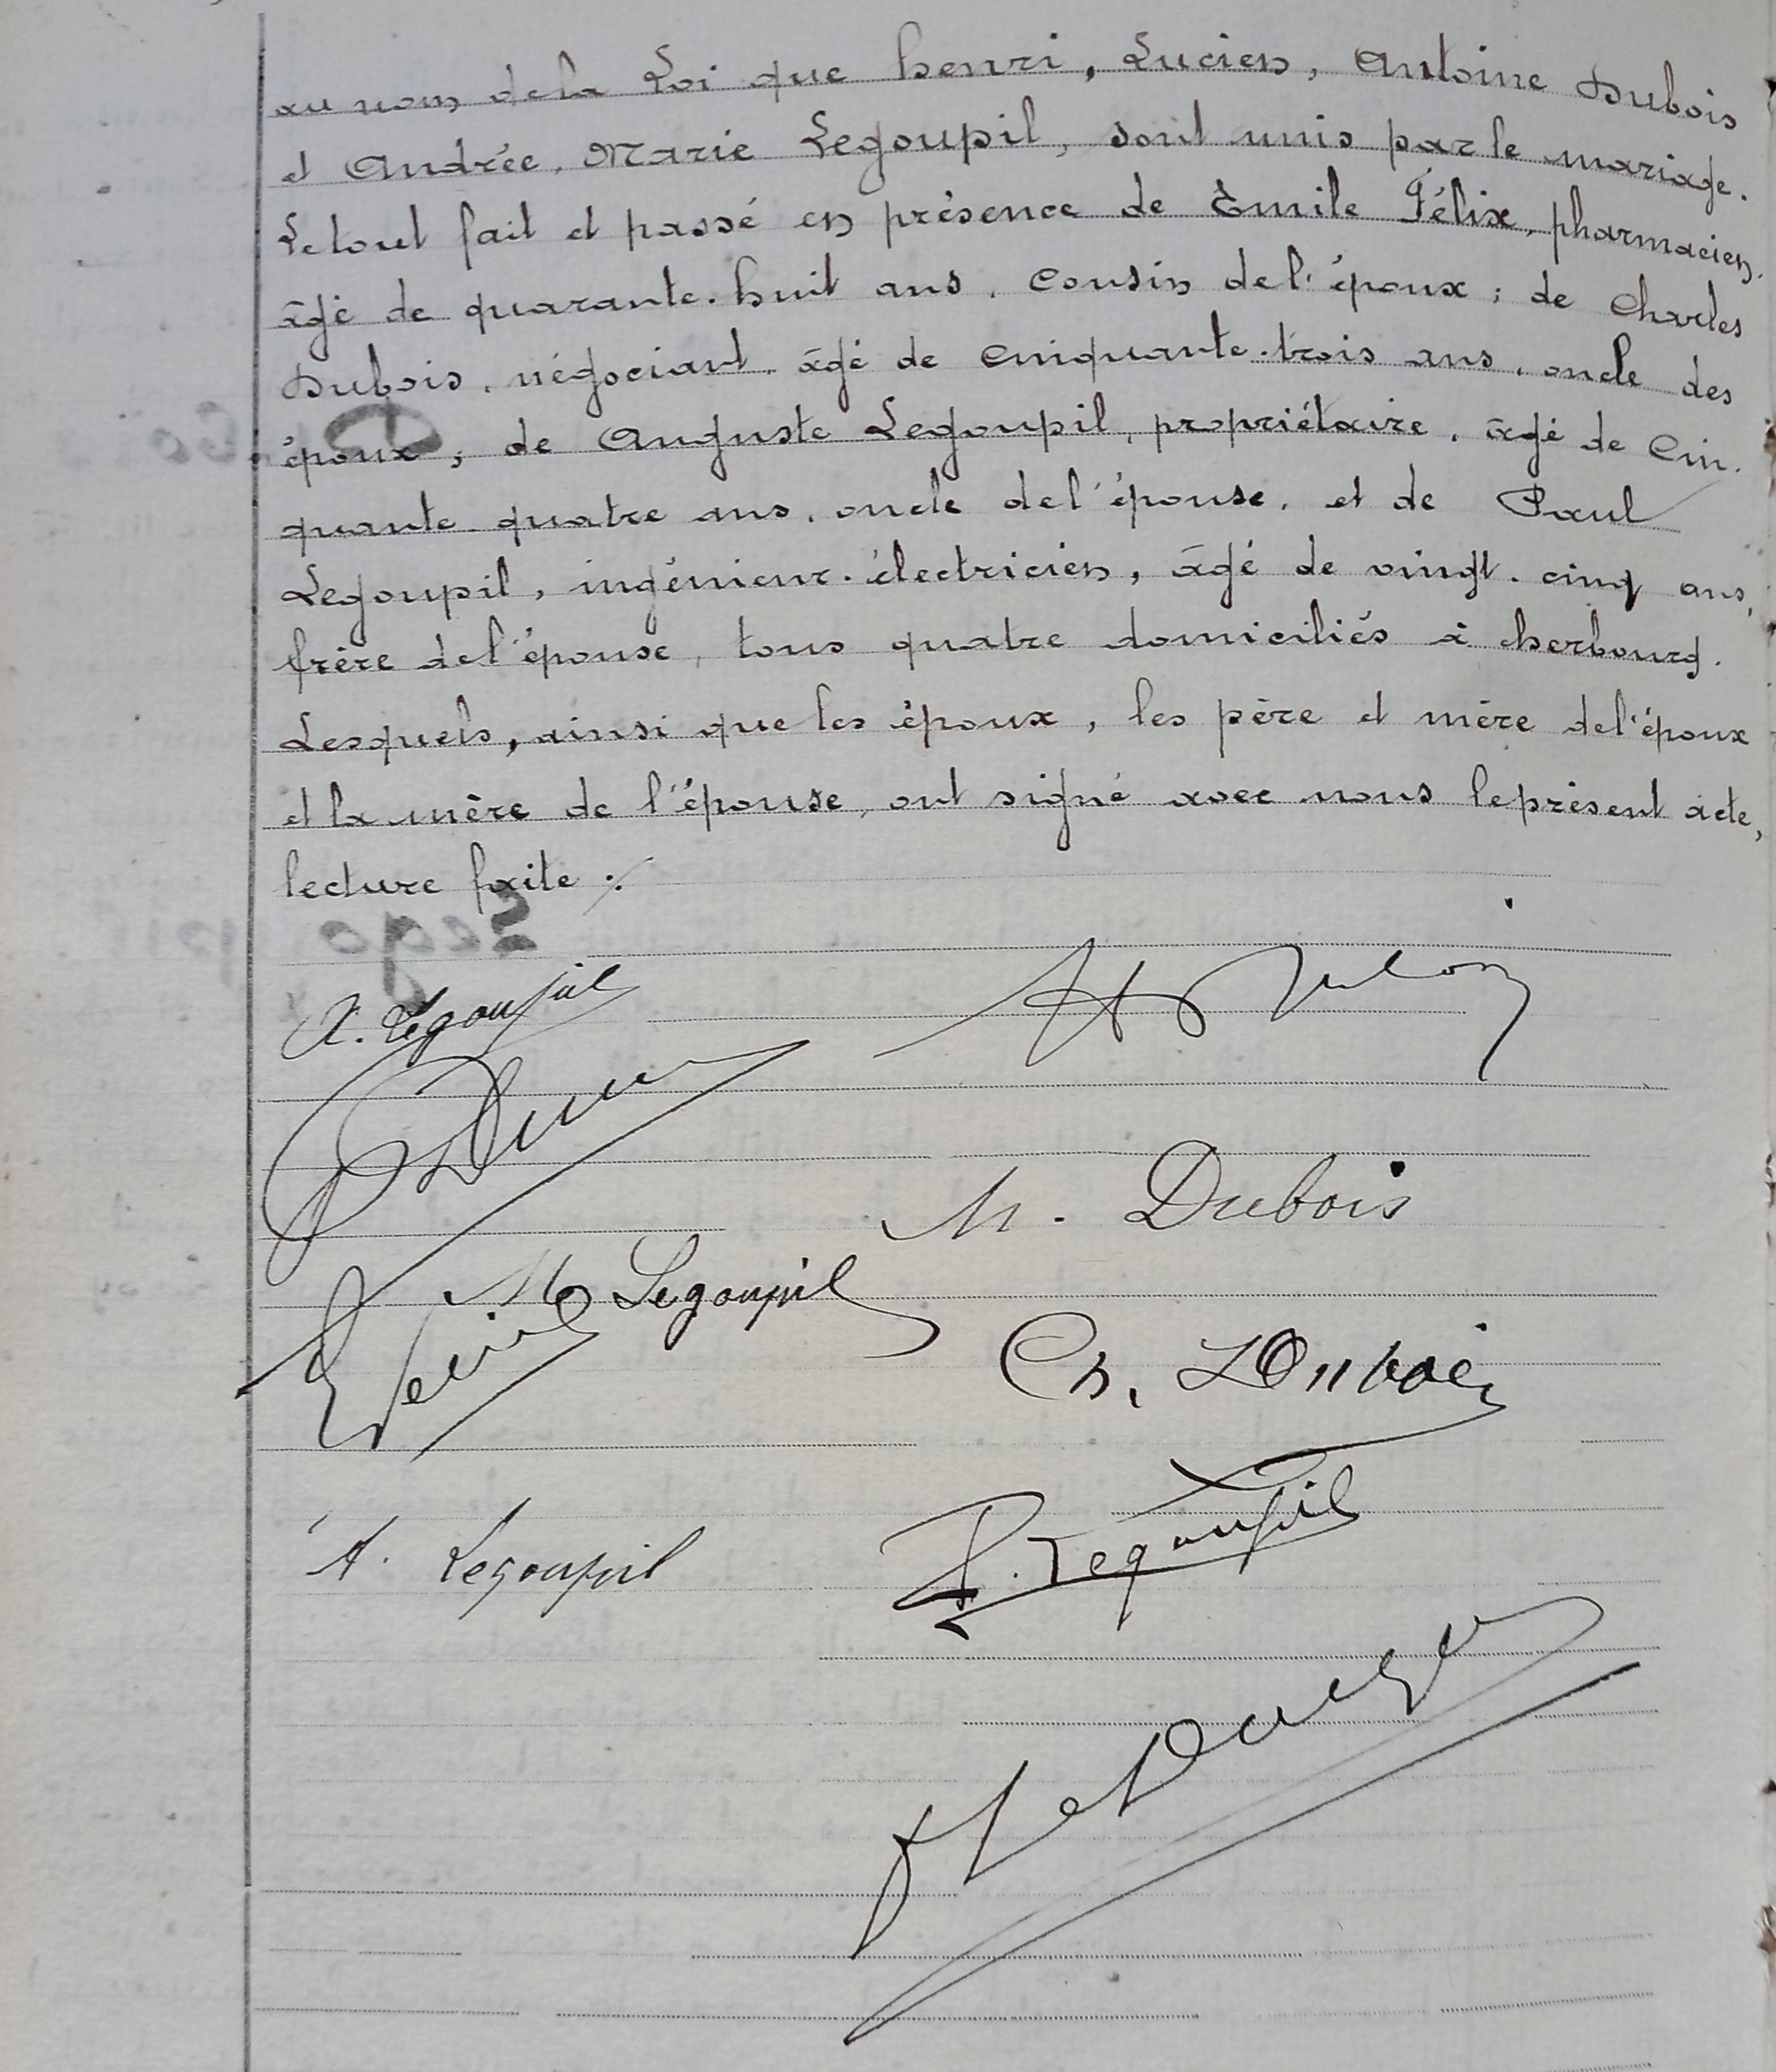 au nom de la Loi que henri, Lucien, Antoine Dubois
et Andrée, Marie Legoupil, sont unis par le mariage.
Le tout fait et passé en présence de Emile Félix, pharmacien,
âgé de quarante-huit ans, cousin de l'époux; de Charles
Dubois, négociant, âgé de cinquante-trois ans, oncle des
époux; de Auguste Legoupil, propriétaire, âgé de cin-
quante-quatre ans, oncle de l'épouse, et de Paul
Legoupil, ingénieur-électricien, âgé de vingt-cinq ans,
frère de l'épouse, tous quatre domiciliés à cherbourg.
Lesquels, ainsi que les époux, les père et mère de l'époux
et la mère de l'épouse, ont signé avec nous le présent acte,
lecture faite ./.
A. Legoupil
H Dubois
M. Dubois
M Legoupil
Ch. Dubois
A. Legoupil
P. Legoupil